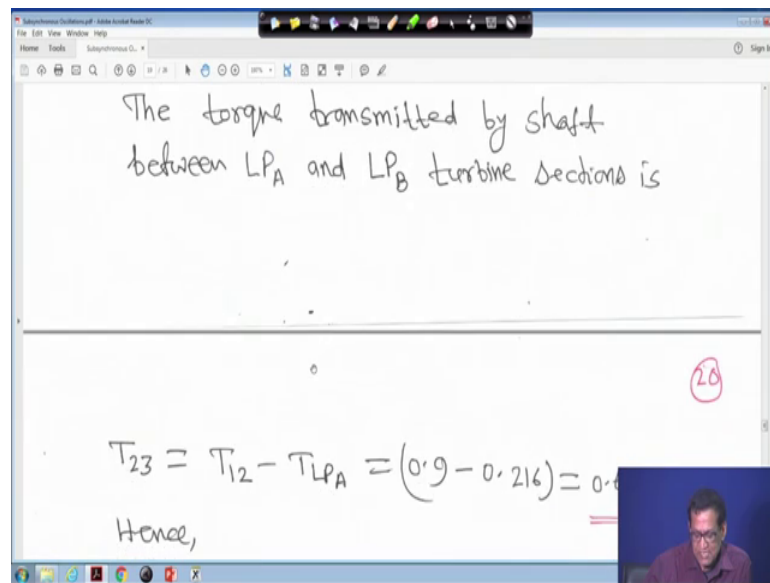 Subsynchronous Oscillations.pdf - Adobe Acrobat Reader DC
File Edit View Window Help
Home Tools Subsynchronous O... ×
Sign In
19 / 26
The torque transmitted by shaft
between LPA and LPB turbine sections is
20
T23 = T12 - TLPA = (0.9 - 0.216) = 0.
Hence,